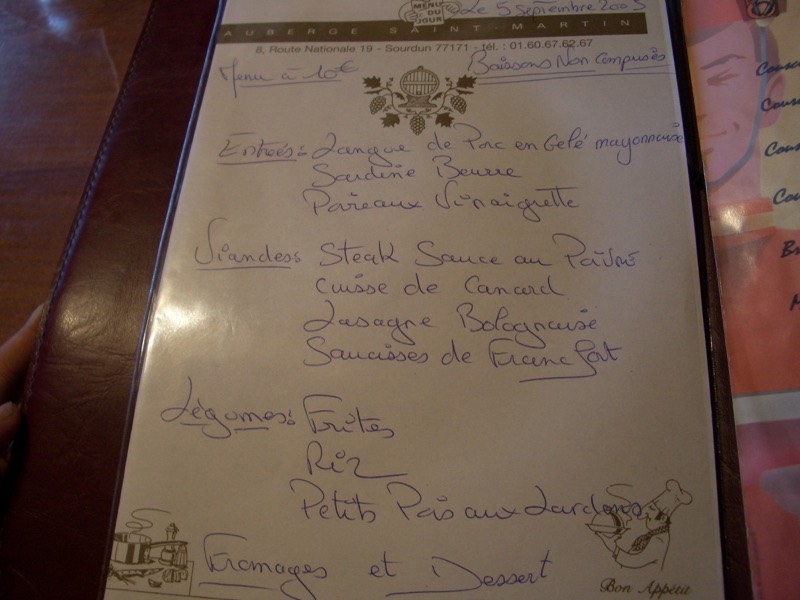 MENU DU JOUR
Le 5 Septembre 2005
AUBERGE SAINT MARTIN
8, Route Nationale 19 - Sourdun 77171 - tél. : 01.60.67.62.67
Menu à 10€
Boissons Non Comprises
Entrées: Langue de Porc en Gelé mayonnaise
Sardine Beurre
Poireaux Vinaigrette
Viandes: Steak Sauce au Poivre
Cuisse de Canard
Lasagne Bolognaise
Saucisses de Francfort
Légumes: Frites
Riz
Petits Pois aux Lardons
Fromages et Dessert
Bon Appétit